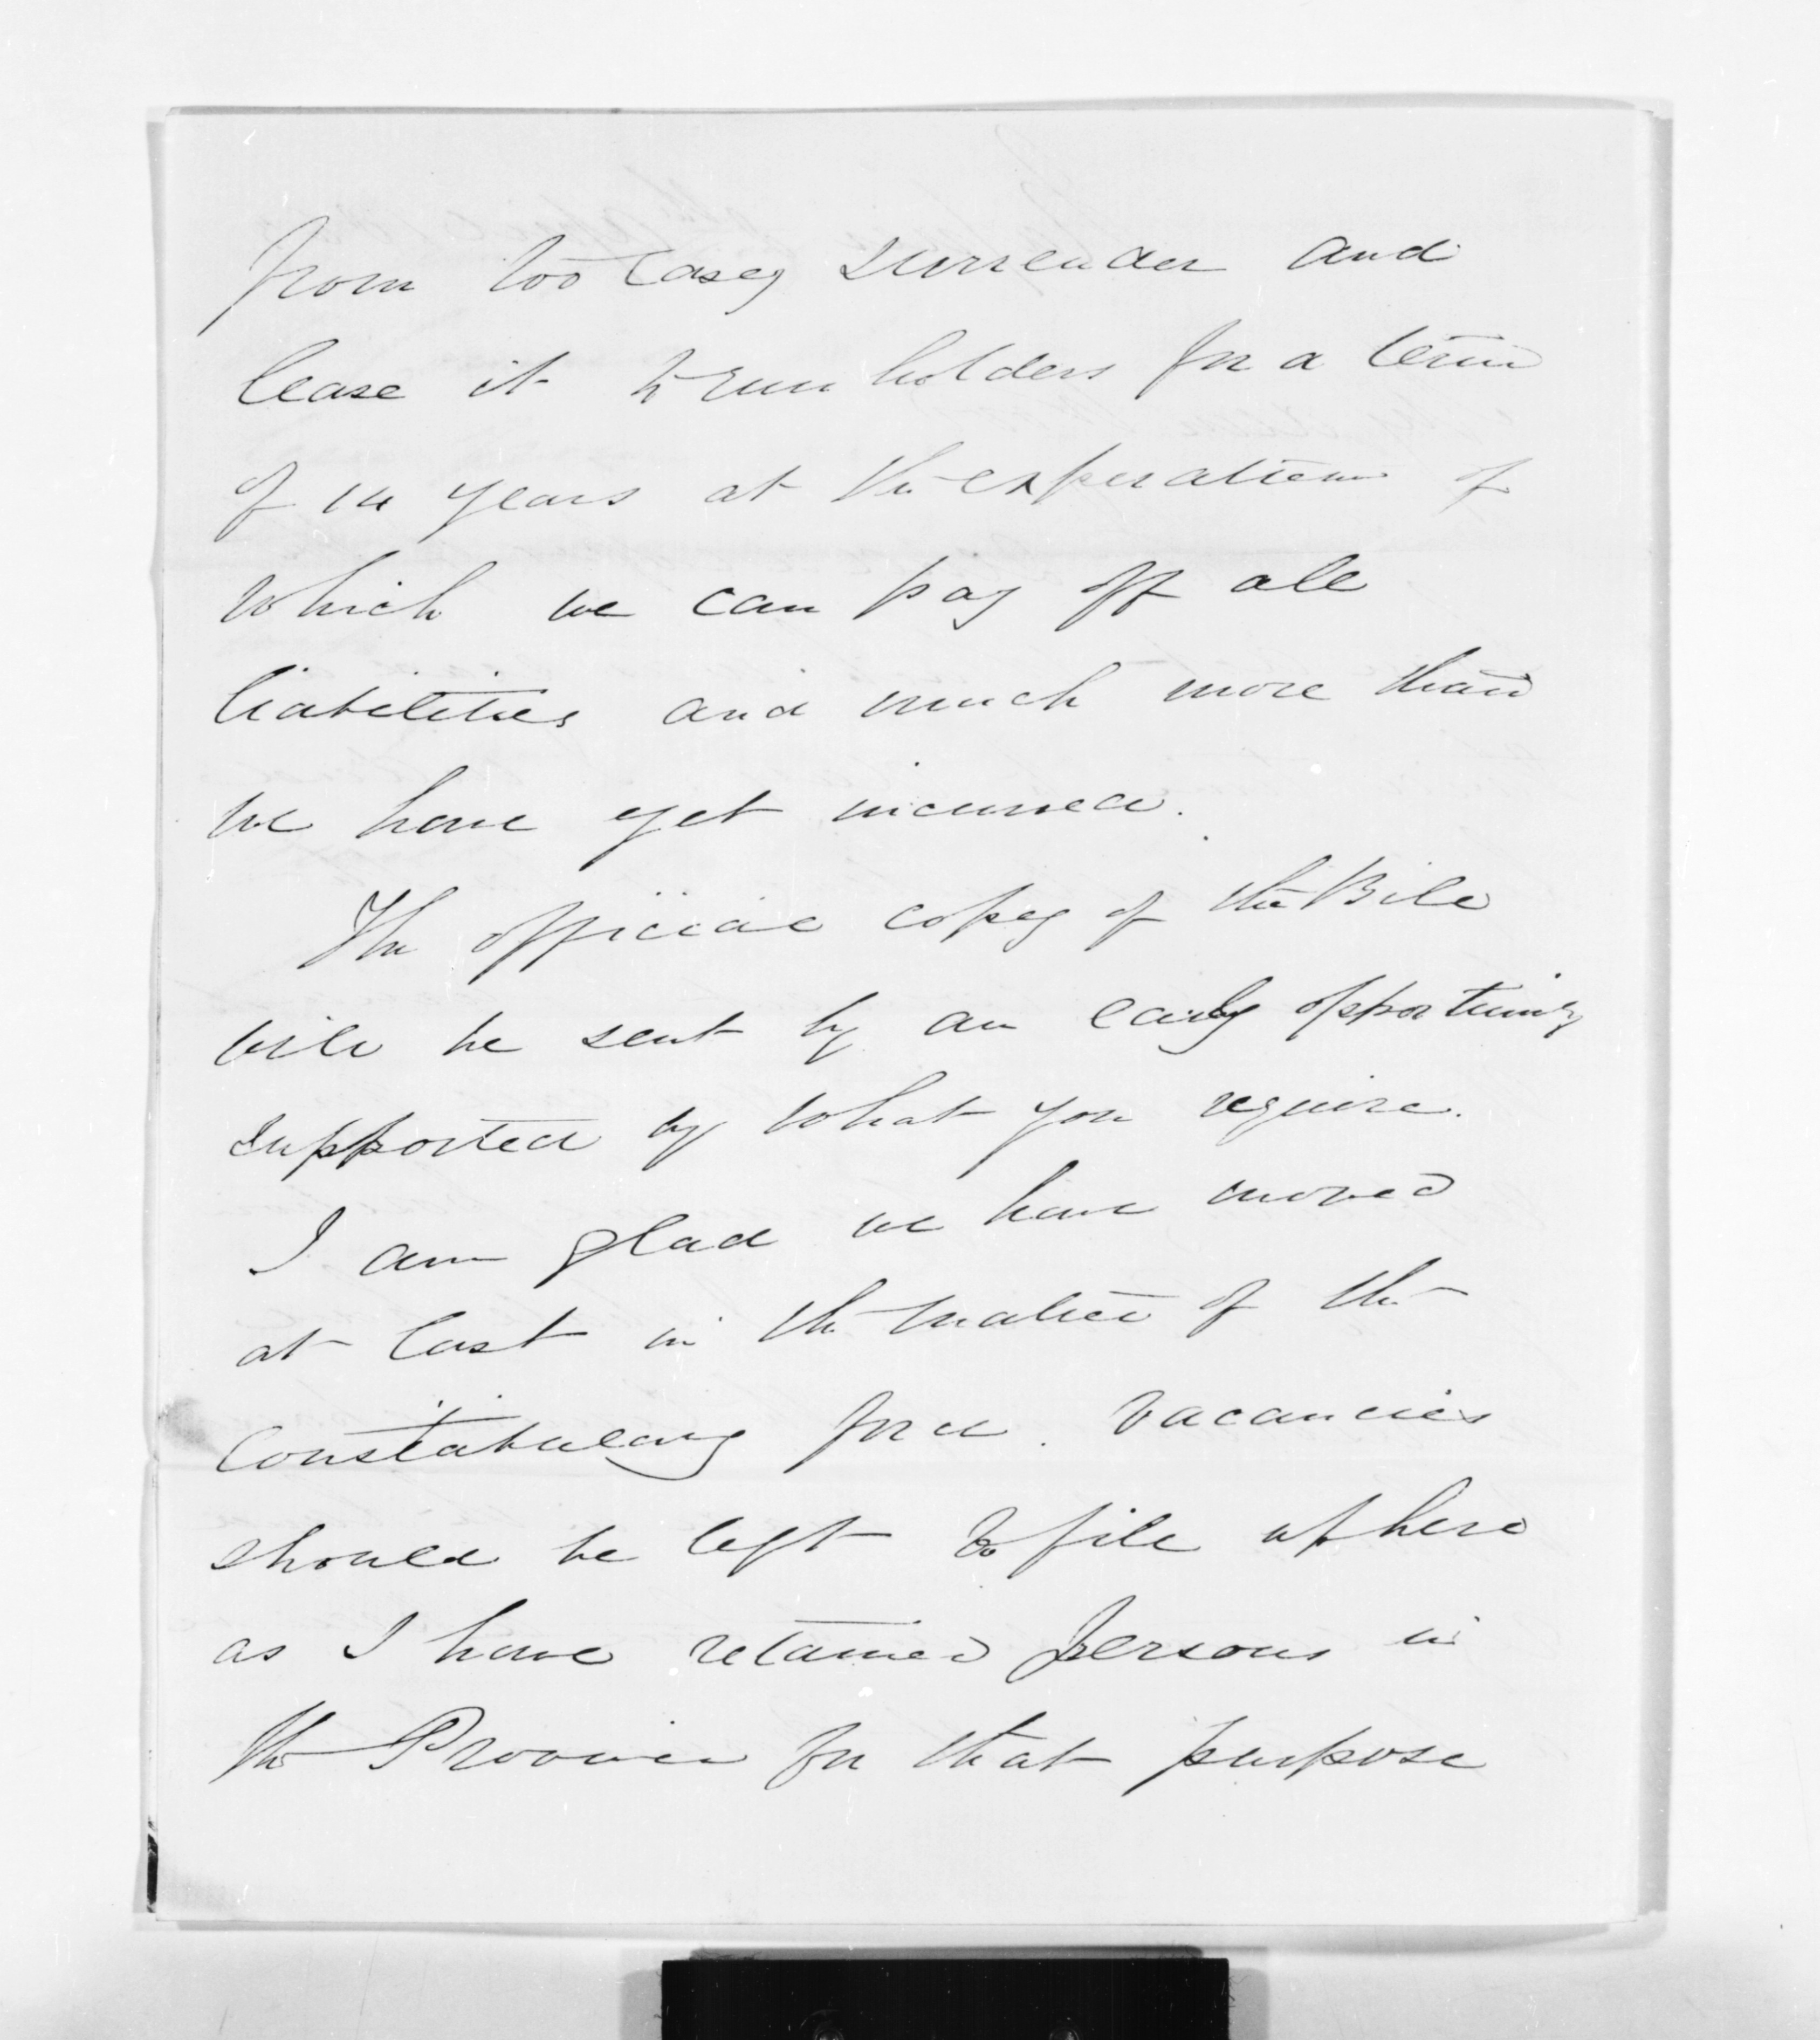 from too easy surrender and
lease it to run holders for a term
of 14 years at the expiration of
which we can pay off all
liabilities and much more than
we have yet incurred.
The official copy of the Bill
will be sent by an early opportunity
supported by what you require.
I am glad we have moved
at last in the matter of the
Constabulary force. Vacancies
should be left to fill up here
as I have retained persons in
the Province for that purpose